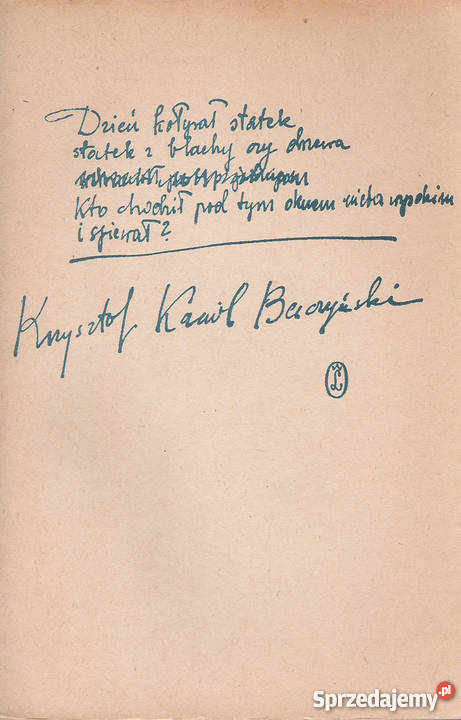 Dzień kołysał statek
statek z blachy czy drzewa
Kto chodził pod tym oknem nieba wysokim
i śpiewał?
Krzysztof Kamil Baczyński
Sprzedajemy.pl